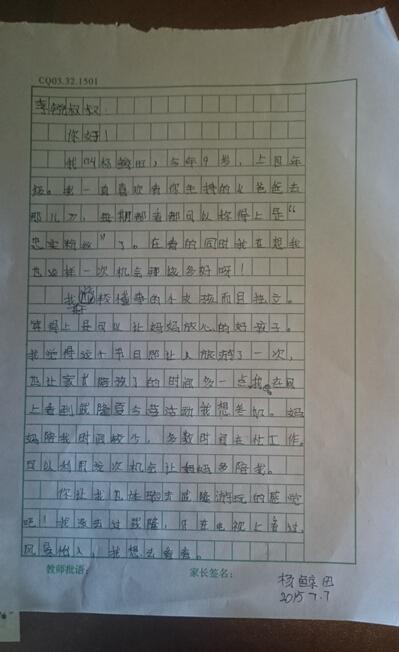 CQ03.32.1501
李 叔叔：
你好！
我叫杨鲸畋，今年9岁，上四年
级。我一直喜欢看你主持的《爸爸去
哪儿》，每期都看都可以称得上是“
忠实粉丝”了。在看的同时我在想我
也这样一次机会那该多好呀！
我 较懂事的个女孩而且独立。
算得上是可以让妈妈放心的好孩子。
我觉得这个节目即让人旅游了一次，
也让家长陪孩子的时间多一点我在网
上看到武隆夏令营活动我想参加。妈
妈陪我时间较少，多数时间在忙工作。
可以利用这次机会让妈妈多陪我。
你让我也体验武隆游玩的感觉
吧！我没去过武隆，只在电视上看过，
风景怡人，我想去看看。
教师批语： 家长签名：
杨鲸畋
2015.7.7